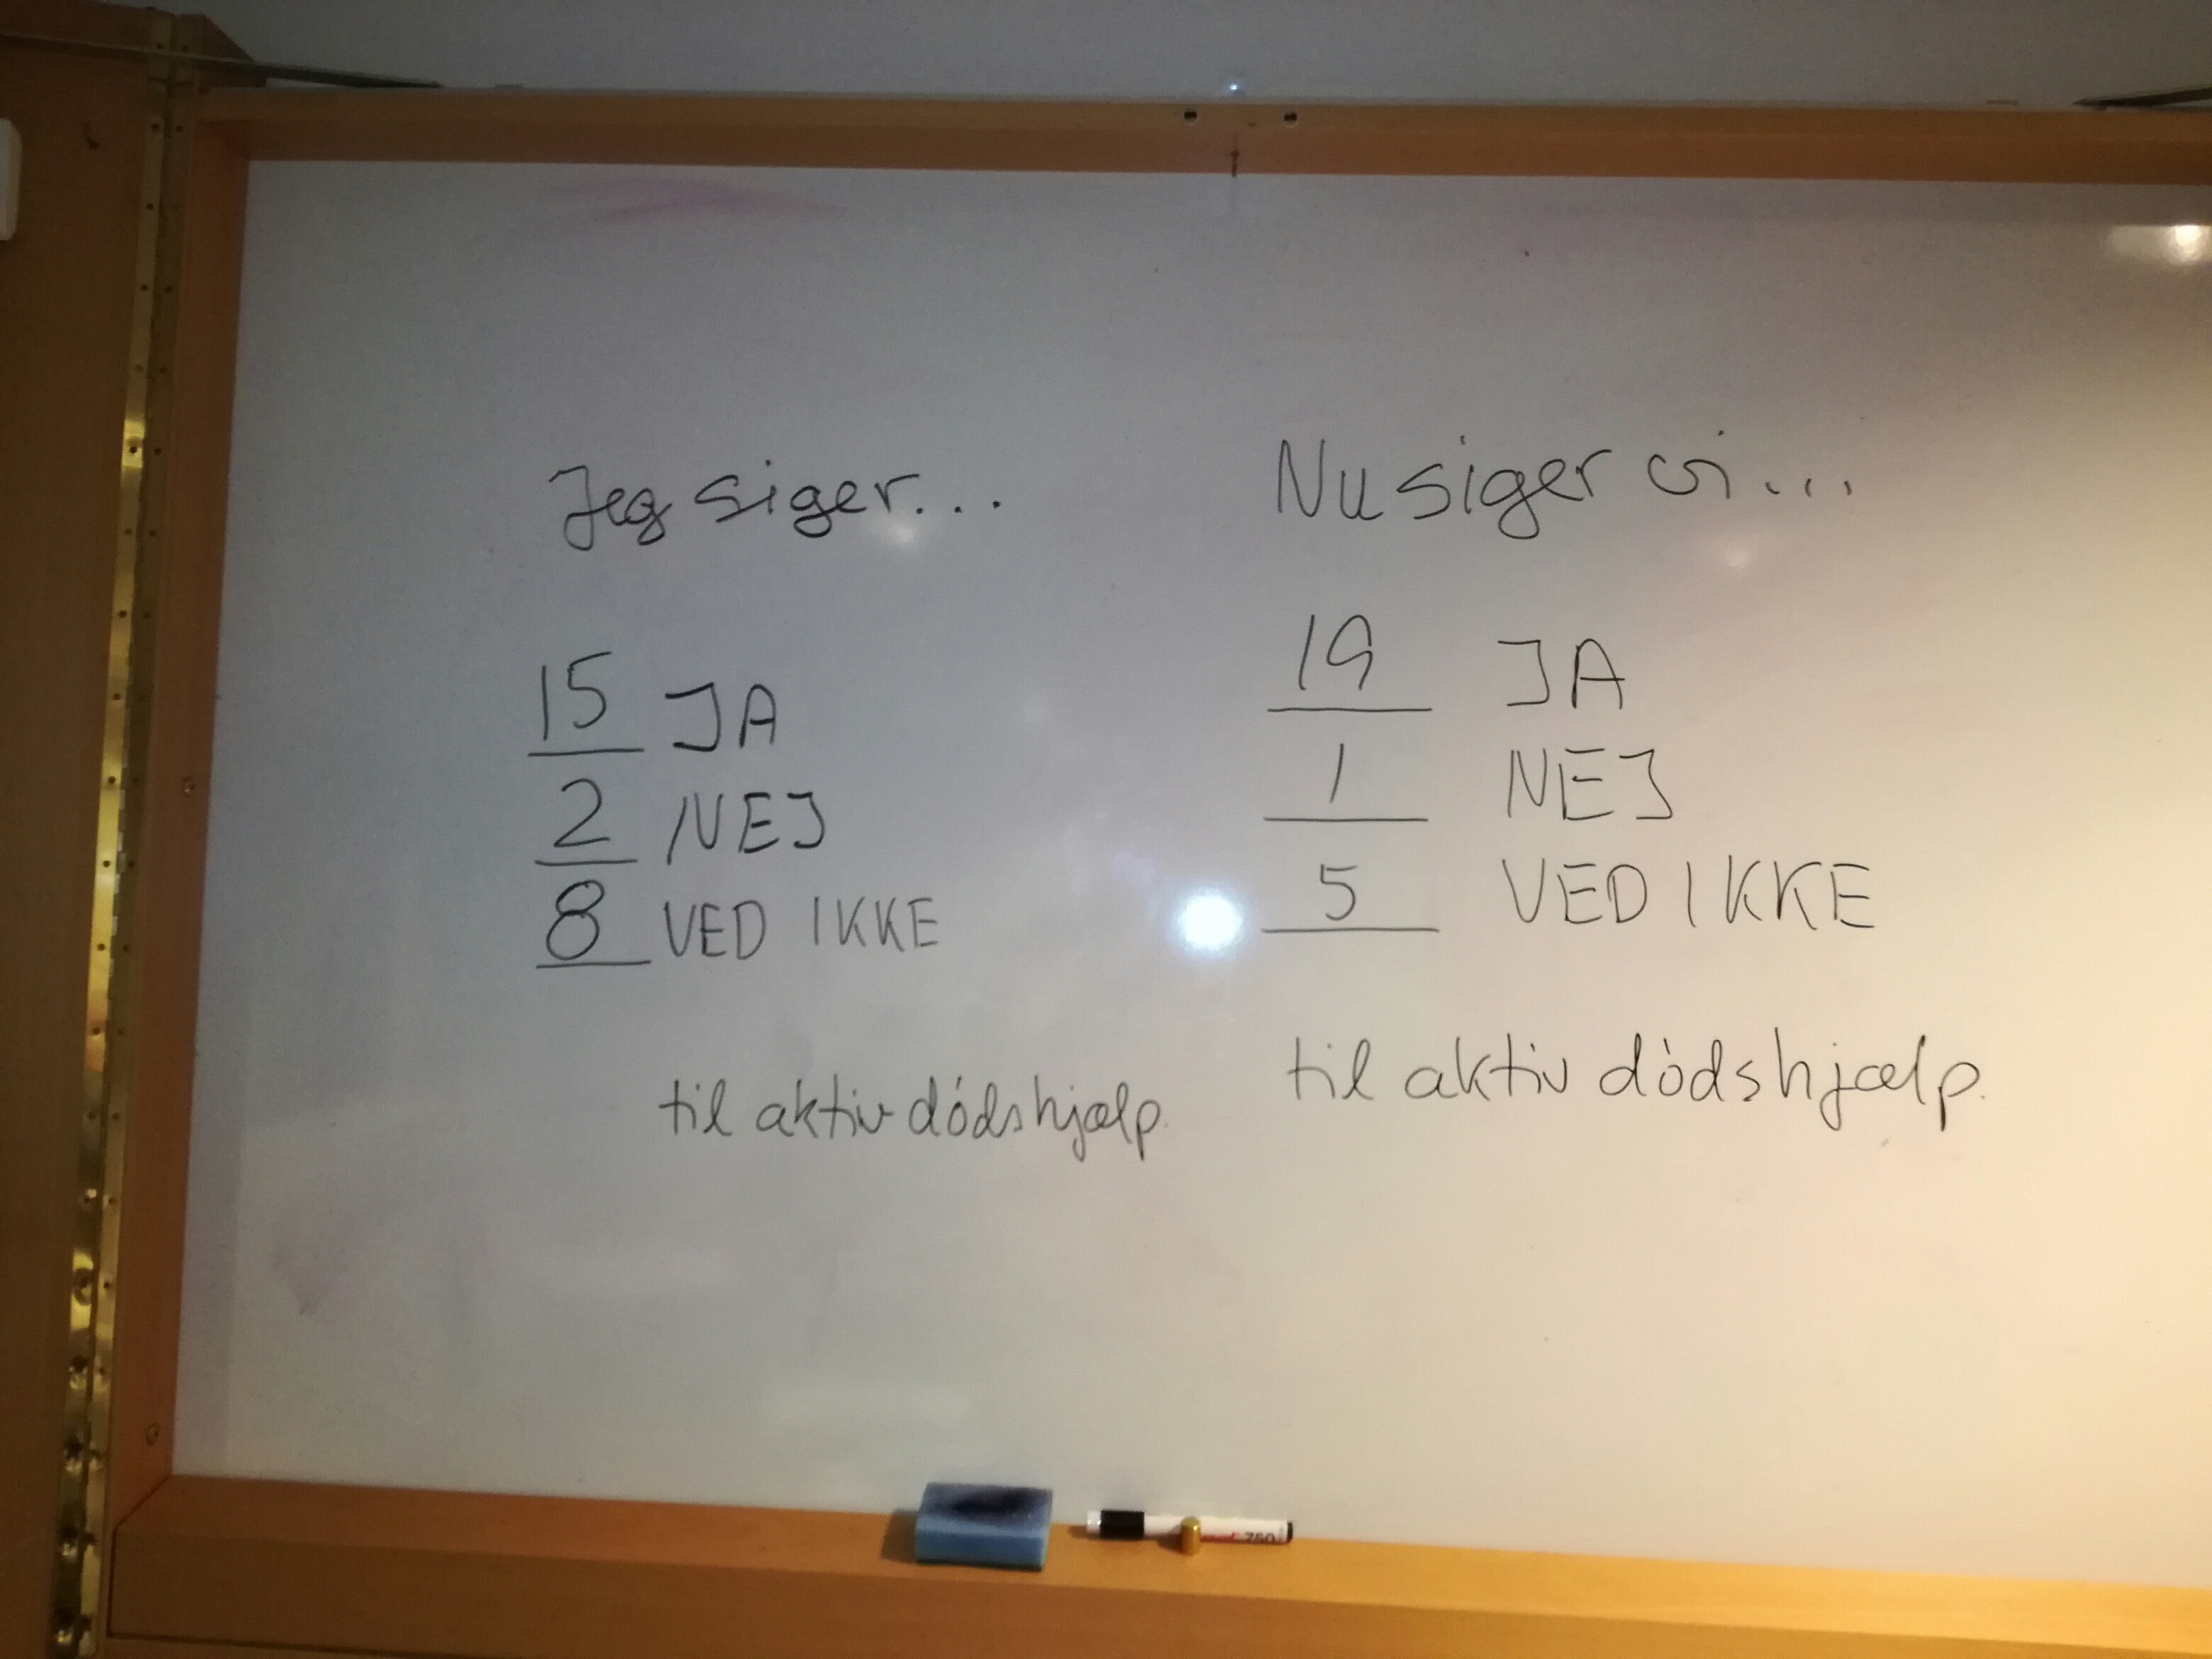 Jeg siger...
15 JA
2 NEJ
8 VED IKKE
til aktiv dödshjælp.
Nu siger vi...
19 JA
1 NEJ
5 VED IKKE
til aktiv dödshjælp.
750